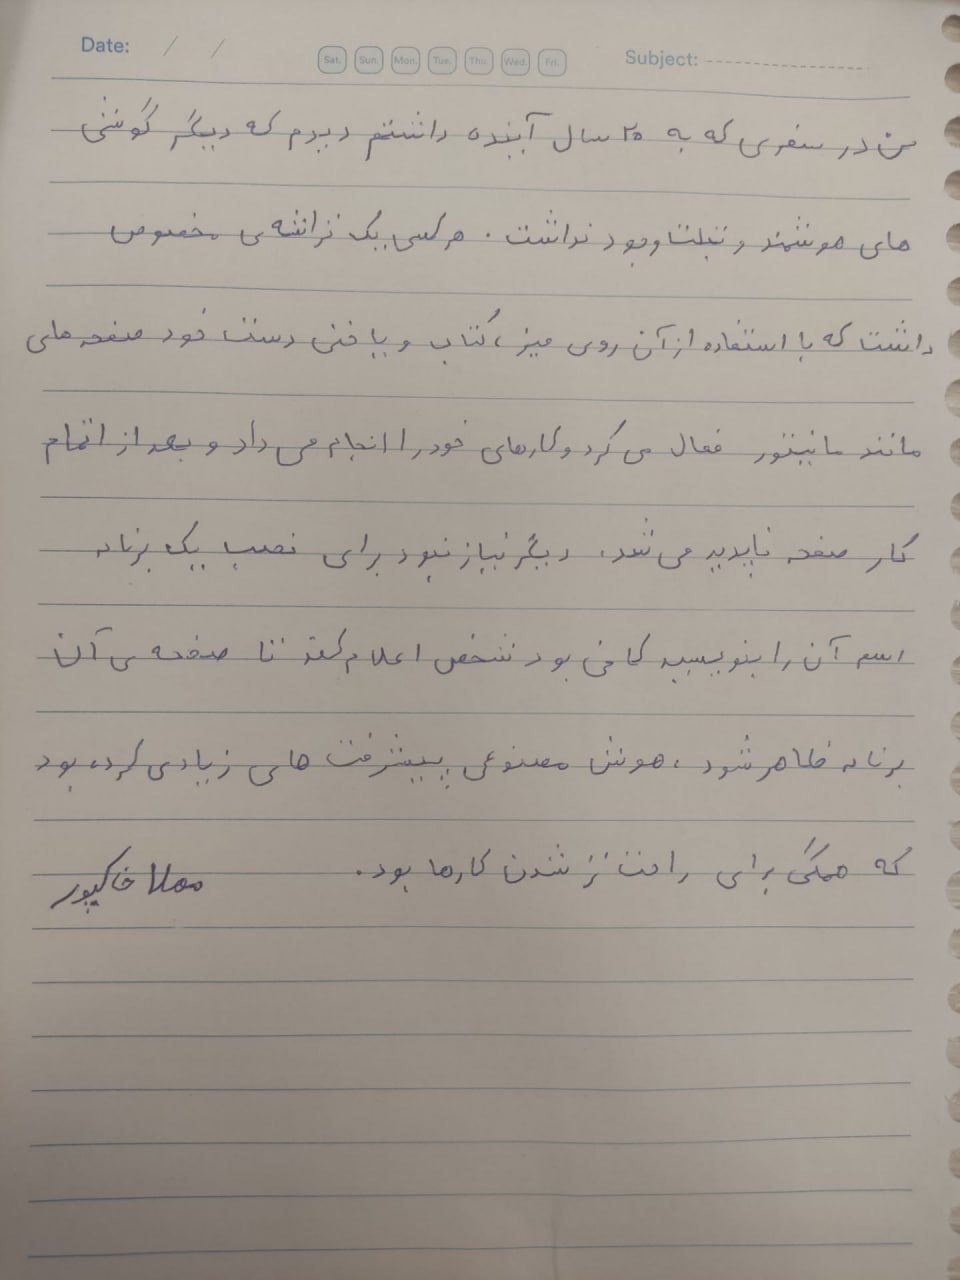 Date: / /
Sat. Sun. Mon. Tue. Thu. Wed. Fri.
Subject:
من در سفری که به ۲۰ سال آینده داشتم دیدم که دیگر گوشی
های هوشمند و تبلت وجود نداشت . هرکسی یک تراشه ی مخصوص
داشت که با استفاده از آن روی میز ، کتاب و یا حتی دست خود صفحه های
مانند مانیتور فعال می کرد و کارهای خود را انجام می داد و بعد از اتمام
کار صفحه ناپدید می شد . دیگر نیاز نبود برای نصب یک برنامه
اسم آن را بنویسید کافی بود شخص اعلام کند تا صفحه ی آن
برنامه ظاهر شود . هوش مصنوعی پیشرفت های زیادی کرده بود
که همگی برای راحت تر شدن کارها بود .
مهلا خاکپور